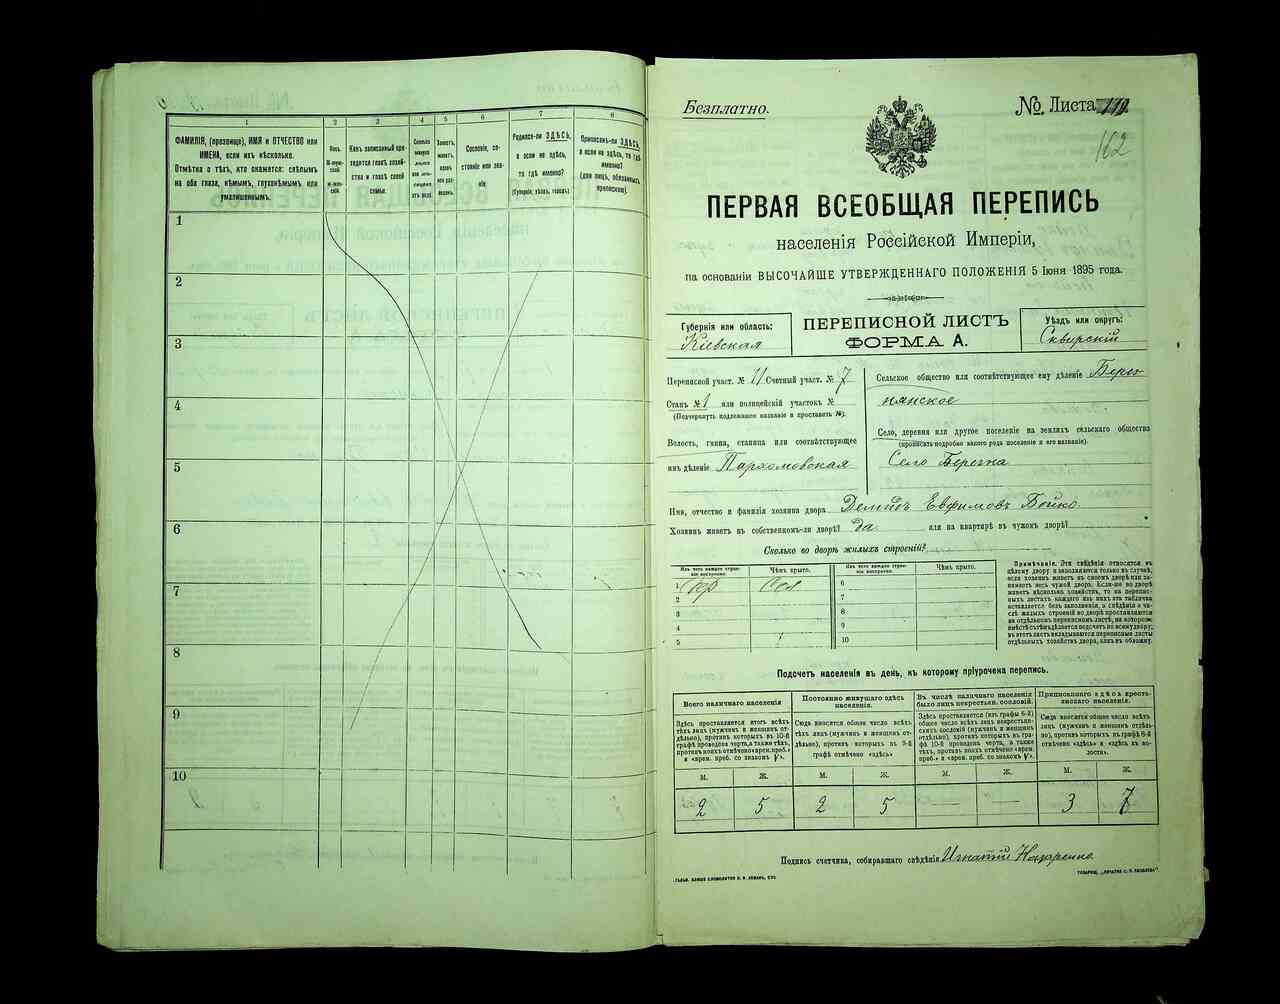 1
2
3
4
5
6
7
8
ФАМИЛІЯ, (прозвище), ИМЯ и ОТЧЕСТВО или
ИМЕНА, если ихъ нѣсколько.
Отмѣтка о тѣхъ, кто окажется: слѣпымъ
на оба глаза, нѣмымъ, глухонѣмымъ или
умалишеннымъ.
Полъ.
М-муж-
ской.
Ж-жен-
скій.
Какъ записанный при-
ходится главѣ хозяй-
ства и главѣ своей
семьи.
Сколько
минуло
лѣтъ
Холостъ,
женатъ,
вдовъ
или раз-
веденъ.
Сословіе, со-
стояніе или зва-
ніе
Родился-ли ЗДѢСЬ,
а если не здѣсь,
то гдѣ именно?
(Губернія, уѣздъ, городъ).
Приписанъ-ли ЗДѢСЬ,
а если не здѣсь, то гдѣ
именно?
(для лицъ, обязанныхъ
припискою).
1
2
3
4
5
6
7
8
9
10
Безплатно.
№ Листа
162
ПЕРВАЯ ВСЕОБЩАЯ ПЕРЕПИСЬ
населенія Россійской Имперіи,
на основаніи ВЫСОЧАЙШЕ УТВЕРЖДЕННАГО ПОЛОЖЕНІЯ 5 Іюня 1895 года.
Губернія или область:
Кіевская
ПЕРЕПИСНОЙ ЛИСТЪ
ФОРМА А.
Уѣздъ или округъ:
Сквирскій
Переписной участ. № 11 Счетный участ. № 7
Станъ № 1 или полицейскій участокъ №
(Подчеркнуть подлежащее названіе и проставить №).
Волость, гмина, станица или соотвѣтствующее
имъ дѣленіе Пархомовская
Сельское общество или соотвѣтствующее ему дѣленіе Берез
нянское
Село, деревня или другое поселеніе на земляхъ сельскаго общества
(прописать подробно какого рода поселеніе и его названіе).
Село Березна
Имя, отчество и фамилія хозяина двора Демидъ Евфимовъ Бойко.
Хозяинъ живетъ въ собственномъ-ли дворѣ? Да или на квартирѣ въ чужомъ дворѣ?
Сколько во дворѣ жилыхъ строеній?
Изъ чего каждое строе-
ніе построено.
Чѣмъ крыто.
Изъ чего каждое строе-
ніе построено.
Чѣмъ крыто.
1 Сол
2
3
4
5
6
7
8
9
10
Примѣчаніе. Эти свѣдѣнія относятся къ
цѣлому двору и заполняются только въ случаѣ,
если хозяинъ живетъ въ своемъ дворѣ или за-
нимаетъ весь чужой дворъ. Если-же во дворѣ
живетъ нѣсколько хозяйствъ, то на перепис-
ныхъ листахъ каждаго изъ нихъ эта табличка
оставляется безъ заполненія, а свѣдѣнія о чи-
слѣ жилыхъ строеній во дворѣ проставляются
на отдѣльномъ переписномъ листѣ, на которомъ
вмѣстѣ съ тѣмъ дѣлается подсчетъ по всему двору;
въ этотъ листъ вкладываются переписные листы
отдѣльныхъ хозяйствъ двора, какъ въ обложку.
Подсчетъ населенія въ день, къ которому пріурочена перепись.
Всего наличнаго населенія
Здѣсь проставляется итогъ всѣхъ
тѣхъ лицъ (мужчинъ и женщинъ от-
дѣльно), противъ которыхъ въ 10-й
графѣ проведена черта, а также тѣхъ,
противъ коихъ отмѣчено «врем. преб.»
и «врем. преб. со знакомъ V».
Постоянно живущаго здѣсь
населенія.
Сюда вносится общее число всѣхъ
тѣхъ лицъ (мужчинъ и женщинъ от-
дѣльно), противъ которыхъ въ 9-й
графѣ отмѣчено «здѣсь»
Въ числѣ наличнаго населенія
было лицъ некрестьян. сословій.
Здѣсь проставляется (изъ графы 6-й)
общее число всѣхъ лицъ некрестьян-
скихъ сословій (мужчинъ и женщинъ
отдѣльно), противъ которыхъ въ
графѣ 10-й проведена черта, а также
тѣхъ, противъ коихъ отмѣчено «врем.
преб.» и «врем. преб. со знакомъ V».
Приписаннаго здѣсь кресть-
янскаго населенія.
Сюда вносится общее число всѣхъ
лицъ (мужчинъ и женщинъ отдѣль-
но), противъ которыхъ въ графѣ 8-й
отмѣчено «здѣсь» и «здѣсь въ во-
лости».
М. Ж. М. Ж. М. Ж. М. Ж.
2 5 2 5 — — 3 7
Подпись счетчика, собиравшаго свѣдѣнія Игнатій Назаренко.